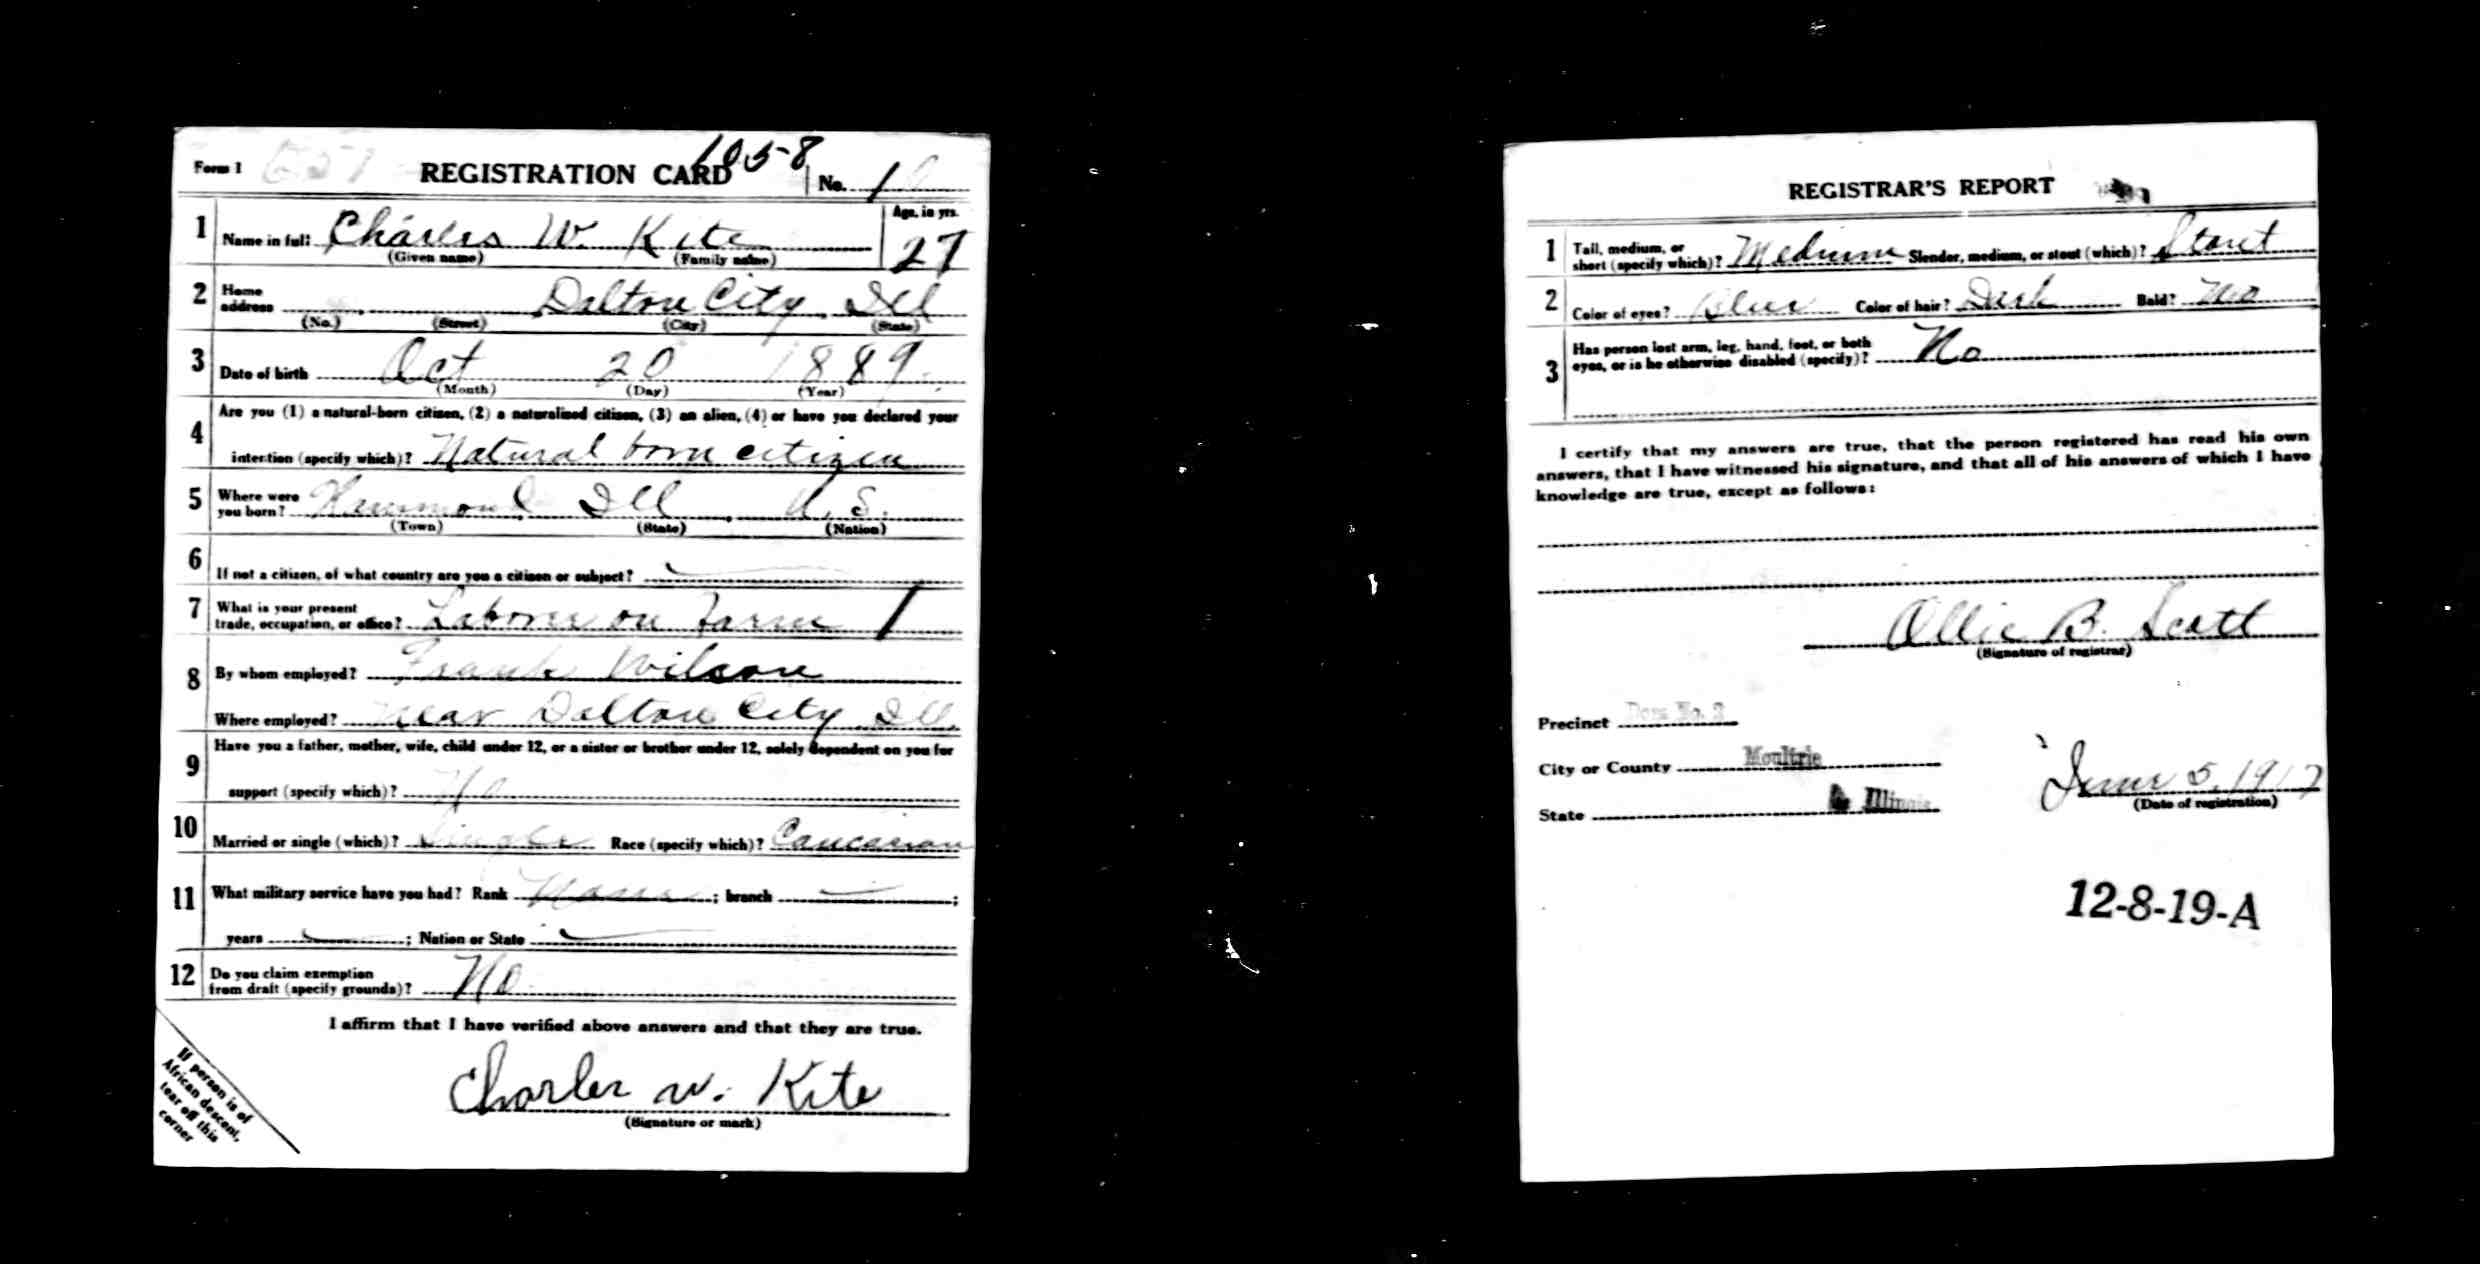 Form 1 REGISTRATION CARD 105-8 No. 1
1 Name in full Charles W. Kite Age, in yrs. 27
(Given name) (Family name)
2 Home address Dalton City, Ill
(No.) (Street) (City) (State)
3 Date of birth Oct 20 1889
(Month) (Day) (Year)
4 Are you (1) a natural-born citizen, (2) a naturalized citizen, (3) an alien, (4) or have you declared your
intention (specify which)? Natural born citizen
5 Where were you born? Hammond Ill U.S.
(Town) (State) (Nation)
6 If not a citizen, of what country are you a citizen or subject?
7 What is your present trade, occupation, or office? Laborer on Farm 1
8 By whom employed? Frank Wilson
Where employed? Near Dalton City Ill
9 Have you a father, mother, wife, child under 12, or a sister or brother under 12, solely dependent on you for
support (specify which)? No
10 Married or single (which)? Single Race (specify which)? Caucasian
11 What military service have you had? Rank None ; branch ;
years ; Nation or State
12 Do you claim exemption from draft (specify grounds)? No
I affirm that I have verified above answers and that they are true.
Charles W. Kite
(Signature or mark)
If person is of
African descent,
tear off this
corner
REGISTRAR'S REPORT
1 Tall, medium, or short (specify which)? Medium Slender, medium, or stout (which)? Stout
2 Color of eyes? Blue Color of hair? Dark Bald? No
3 Has person lost arm, leg, hand, foot, or both eyes, or is he otherwise disabled (specify)? No
I certify that my answers are true, that the person registered has read his own
answers, that I have witnessed his signature, and that all of his answers of which I have
knowledge are true, except as follows:
Ollie B. Scott
(Signature of registrar)
Precinct Dora No. 2
City or County Moultrie
State Illinois
June 5, 1917
(Date of registration)
12-8-19-A